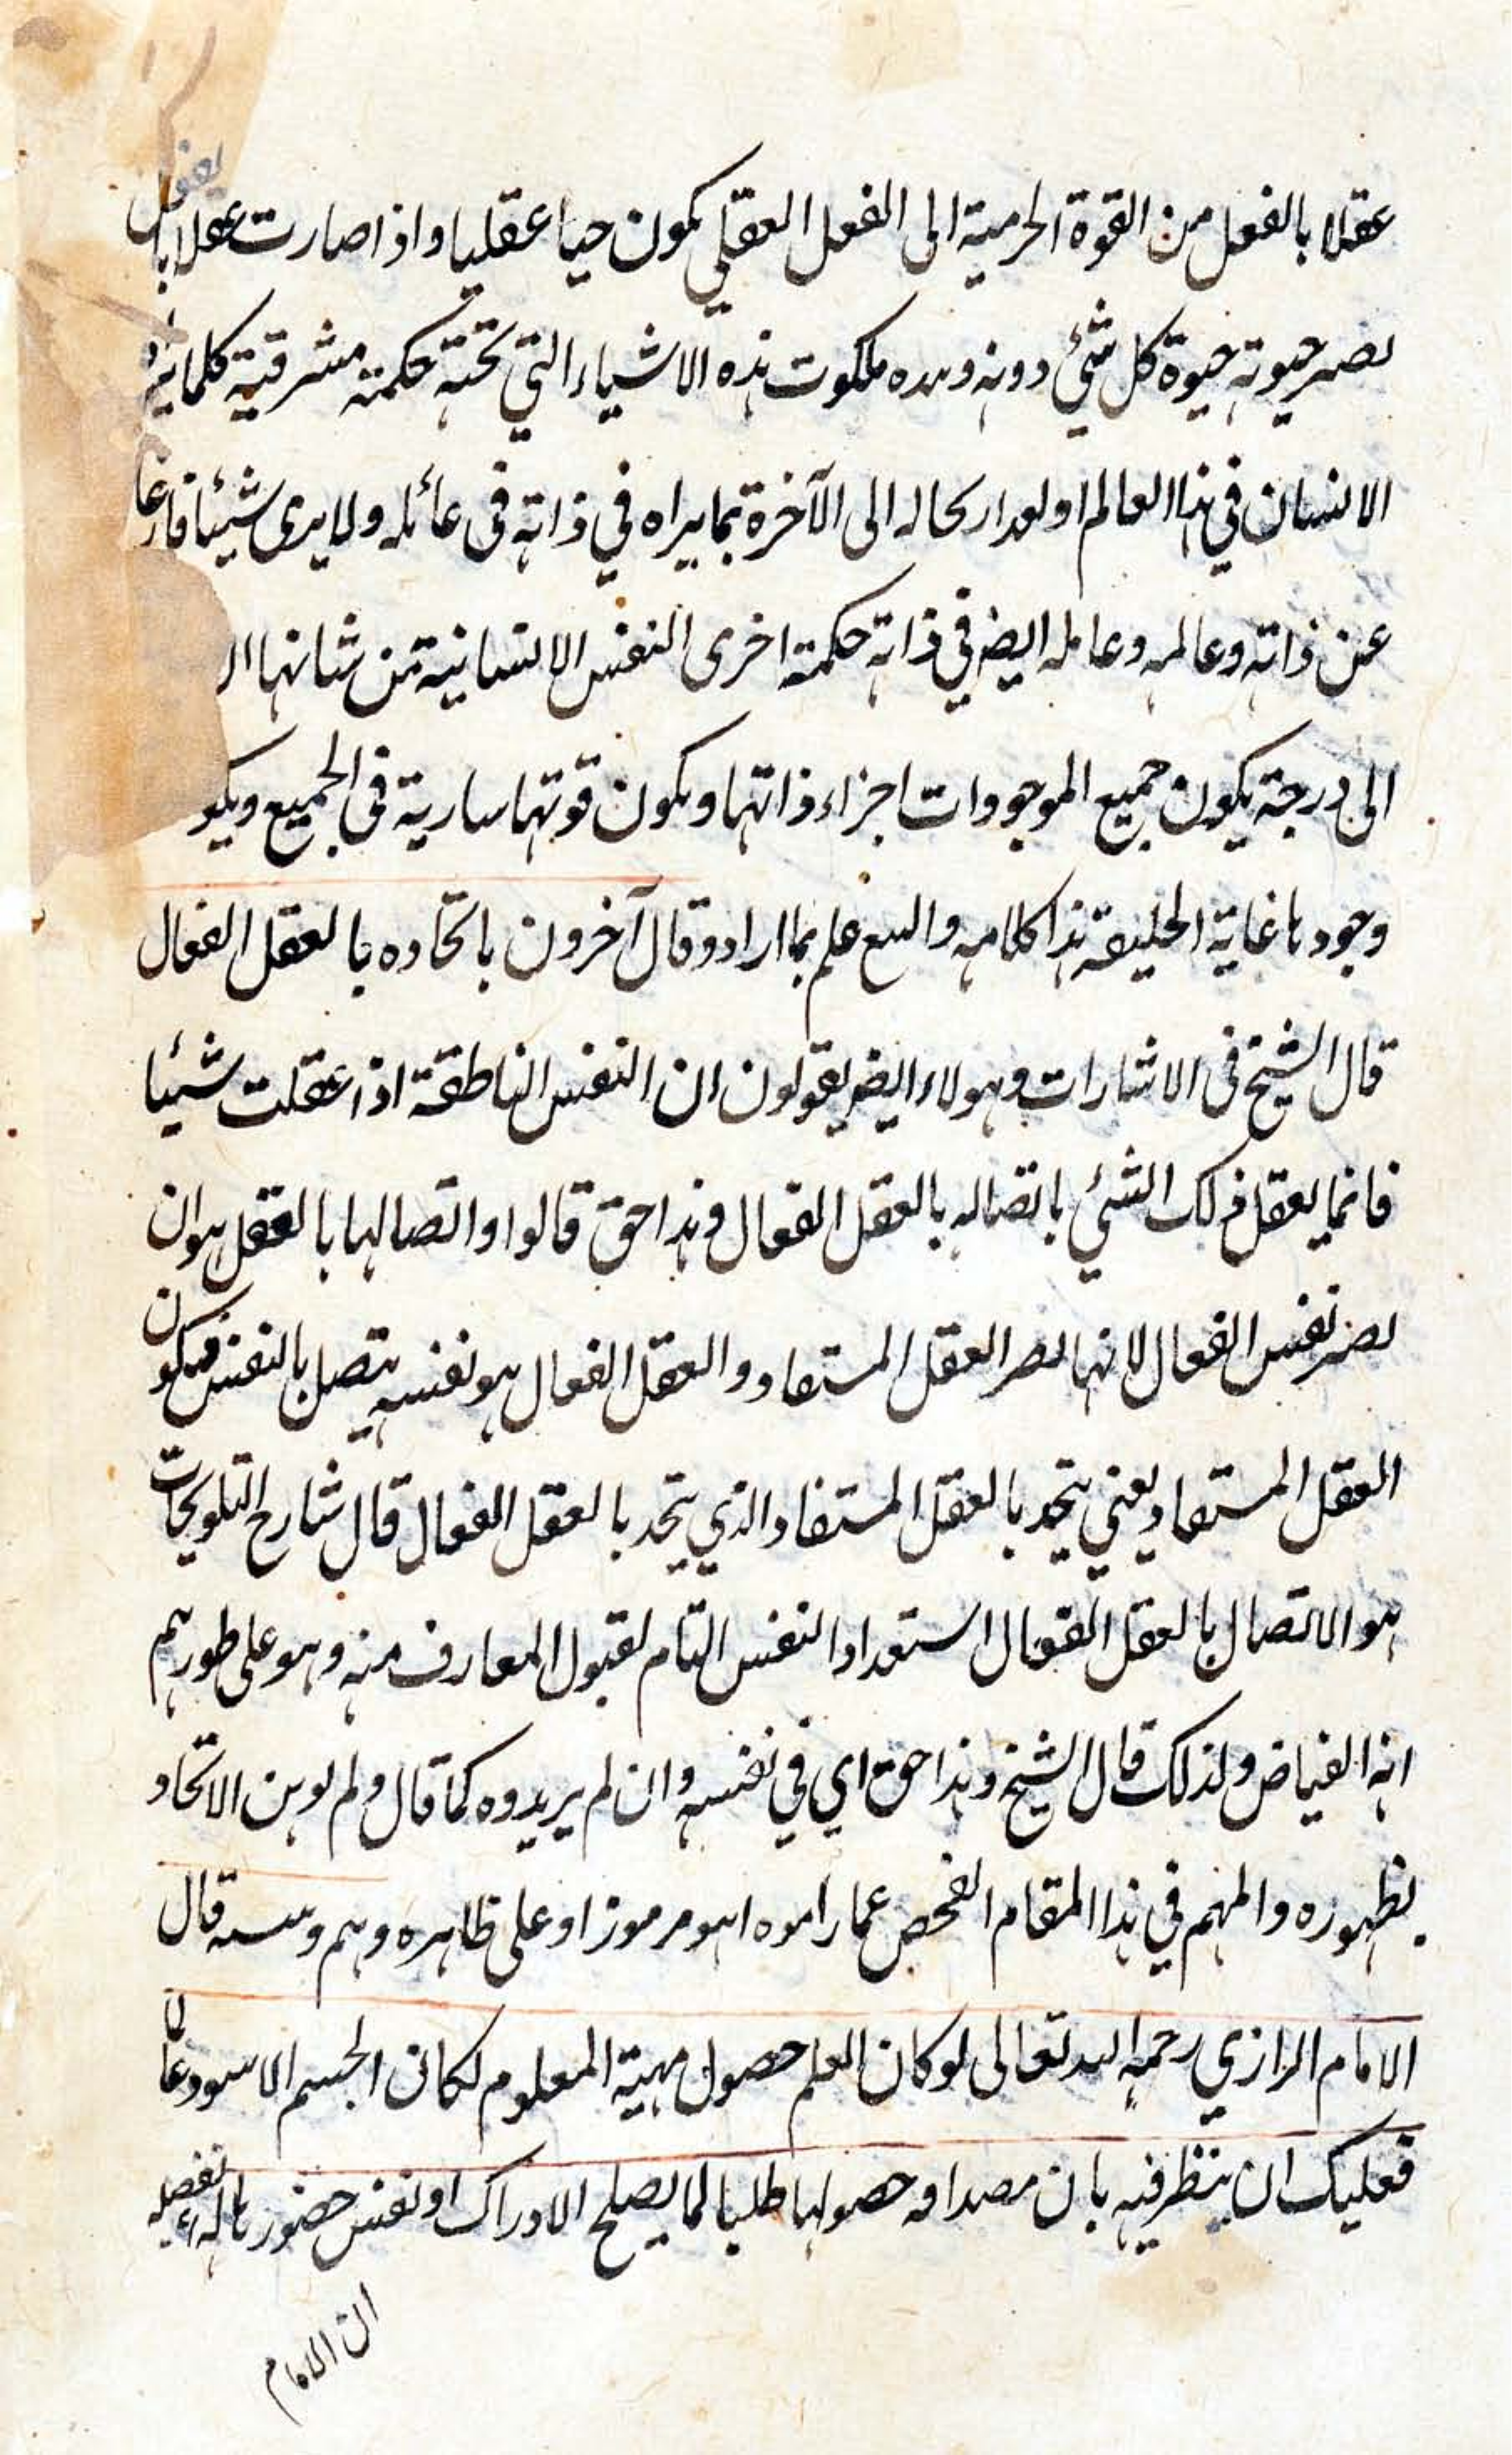 عقلا بالفعل من القوة الجرمية الى الفعل العقلي يكون حيا عقليا واذا صارت عقلا بالفعل
يصير حيوته حيوة كل شئ دونه وبيده ملكوت هذه الاشياء التي تحته حكمة مشرقية كلما يراه
الانسان في هذا العالم او بعد ارتحاله الى الآخرة بما يراه في ذاته في عالمه ولا يرى شيئا خارجا
عن ذاته وعالمه وعالمه ايضا في ذاته حكمة اخرى النفس الانسانية من شانها ان
الى درجة يكون جميع الموجودات اجزاء ذاتها ويكون قوتها سارية في الجميع ويكو
وجودها غاية الخليقة هذا كلامه والله علم بما اراد وقال آخرون باتحاده بالعقل الفعال
قال الشيخ في الاشارات وهولاء ايضا يقولون ان النفس الناطقة اذا عقلت شيئا
فانما يعقل ذلك الشئ باتصاله بالعقل الفعال وهذا حق قالوا واتصالها بالعقل هو ان
يصير نفس الفعال لانها يصير العقل المستفاد والعقل الفعال هو نفسه يتصل بالنفس فيكون
العقل المستفاد يعني يتحد بالعقل المستفاد الذي يتحد بالعقل الفعال قال شارح التلويحات
هو الاتصال بالعقل الفعال استعداد النفس التام لقبول المعارف منه وهو على طورهم
انه الفياض ولذلك قال الشيخ وهذا حق اي في نفسه وان لم يريدوه كما قال ولم يوهن الاتحاد
بظهوره والمهم في هذا المقام الفحص عما راموه اهو مرموز او على ظاهره وهم وتنبيه قال
الامام الرازي رحمه الله تعالى لو كان العلم حصول مهية المعلوم لكان الجسم الاسود عالما
فعليك ان ينظر فيه بان مصداقه حصولها طلبا لما يصلح الادراك او نفس حضورها له تفصيله
ان الامام